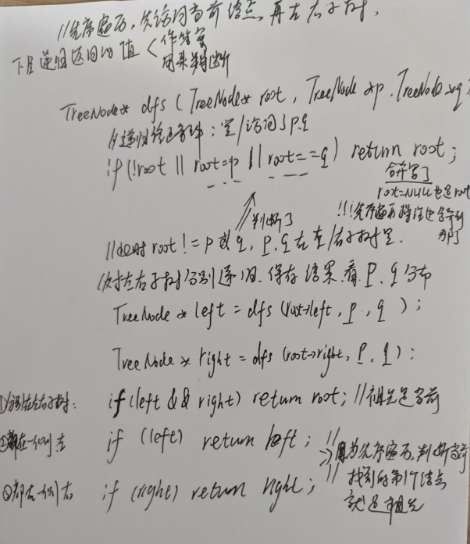 //先序遍历,先访问当前结点,再左右子树,
下层递归返回的值 < 作答案
用来判断
TreeNode* dfs(TreeNode* root, TreeNode *p, TreeNode *q)
//递归终止条件:空/访问了p.q
if(!root || root=p || root==q) return root;
合并写了
root=NULL也是root
判断了
//此时root!=p或q, p.q在左/右子树里.
//对左右子树分别递归,保存结果,看p.q分布
TreeNode * left = dfs(root→left, p, q);
TreeNode * right = dfs(root→right, p, q);
if(left && right) return root; //祖先是当前
②都在一侧 左 if (left) return left;
//因为先序遍历,判断当前
③都在一侧 右 if (right) return right;
//找到的第1个结点
就是祖先